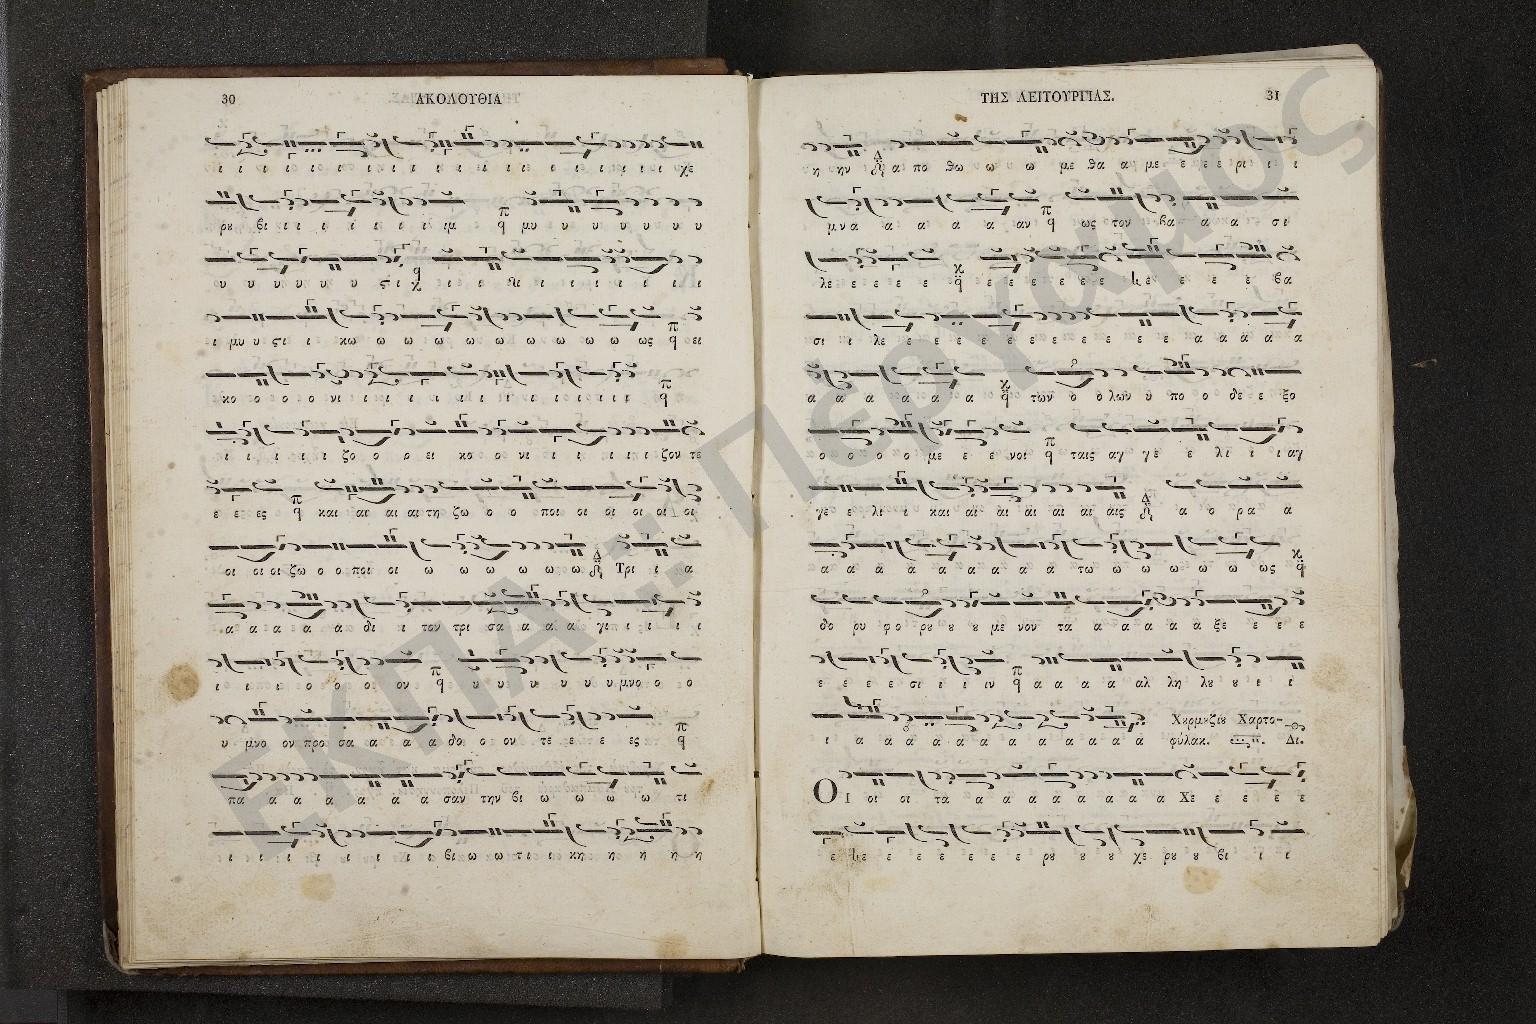 30 ΑΚΟΛΟΥΘΙΑ
ι ι ι ι ι ι ι ι ι ι ι ι ι ι ι ι ι ι ι χε
ρȣ βι ι ι ι ι ι ι ι ιμ π q μυ υ υ υ υ υ υ υ
υ υ υ υ υ υ ςι
ι μυ υ ςι ι κω ω ω ω ω ω ω ω ω ω ως π q ει
κο ο ο ο ο νι ι ι ι ι ι ι ι ι ι ι ι ι ι ι π q
ι ι ι ι ι ζο ο ο ει κο ο ο νι ι ι ι ι ι ι ζον τε
ε ε ες π q και αι αι αι τη ζω ο ο ποι οι οι οι οι οι
οι οι οι ζω ο ο ποι οι ω ω ω ω ω ω Δ Τρι ι α
α α α α α δι ι τον τρι σα α α α γι ι ι ι ι
ι ι ι ο ο ο ο ον π q υ υ υ υ υ υ υ μνο ο ο
υ μνο ον προ σα α α α δο ο ο ον τε ε ε ε ες π q
πα α α α α α α α σαν την βι ω ω ω ω ω τι
ι ι ι ι ι ι ι ι ι ι βι ω ω τι ι κη η η η η
ΤΗΣ ΛΕΙΤΟΥΡΓΙΑΣ. 31
η ην Δ α πο θω ω ω ω με θα α με ε ε ε ρι ι ι
μνα α α α α αν π q ως τον βα α α σι
λε ε ε ε ε ε
σι ι λε ε ε ε ε ε ε ε ε ε ε ε ε α α α α α
α α α α α α α α των ο ο λων υ πο ο δε ε ξο
ο ο ο ο ο με ε ε νοι π q ταις αγ γε ε λι ι ι αγ
γε ε λι ι και αι αι αι αι αι αι αις Δ α ο ρα α
α α α α α α α α α α τω ω ω ω ω ω ω ως
δο ρυ φο ρȣ ȣ ȣ με νον τα α α α α α ξε ε ε ε
ε ε ε ε σι ι ι ιν π q α α α α αλ λη λȣ ȣ ι ι
ι α α α α α α α α α α α α α Χȣρμȣζίȣ Χαρτο-
φύλακ. Δι.
ΟΙ οι οι τα α α α α α α α α α Χε ε ε ε ε
ε ε ε ε ε ε ε ρȣ ȣ ȣ χε ρȣ ȣ βι ι ι
ΕΚΠΑ :: Πέργαμος